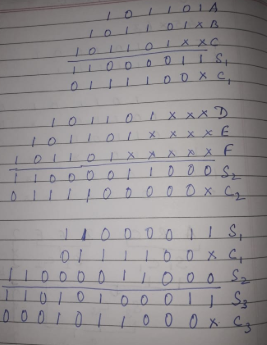 1 0 1 1 0 1 A
1 0 1 1 0 1 x B
1 0 1 1 0 1 x x C
1 1 0 0 0 0 1 1 S₁
0 1 1 1 1 0 0 x C₁
1 0 1 1 0 1 x x x D
1 0 1 1 0 1 x x x x E
1 0 1 1 0 1 x x x x x F
1 1 0 0 0 0 1 1 0 0 0 S₂
0 1 1 1 1 0 0 0 0 0 x C₂
1 1 0 0 0 0 1 1 S₁
0 1 1 1 1 0 0 x C₁
1 1 0 0 0 0 1 1 0 0 0 S₂
1 1 0 1 0 1 0 0 0 1 1 S₃
0 0 0 1 0 1 1 0 0 0 x C₃